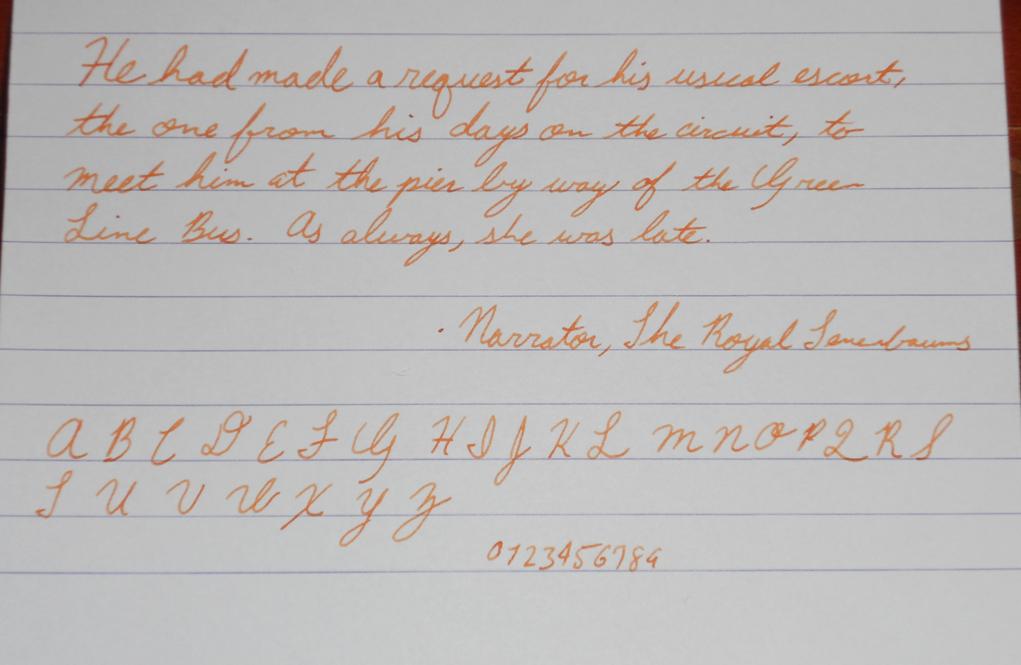 He had made a request for his usual escort,
the one from his days on the circuit, to
meet him at the pier by way of the Green
Line Bus. As always, she was late.
· Narrator, The Royal Tenenbaums
A B C D E F G H I J K L M N O P Q R S
T U V W X Y Z
0123456789